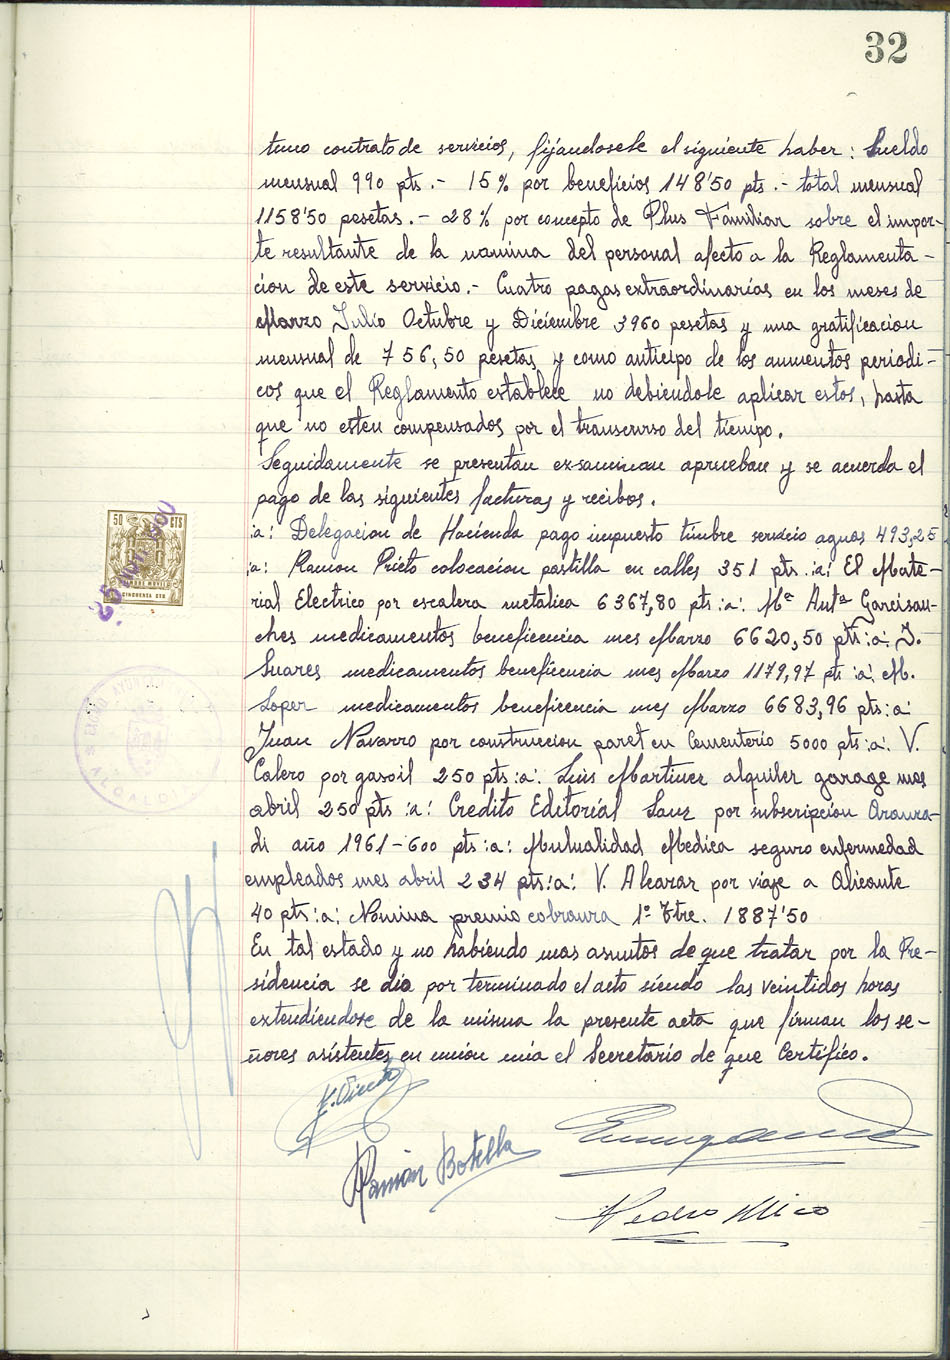 32
tuno contrato de servicios, fijandosele el siguiente haber: Sueldo
mensual 990 pts.- 15% por beneficios 148'50 pts.- total mensual
1158'50 pesetas.- 28% por concepto de Plus Familiar sobre el impor-
te resultante de la nomina del personal afecto a la Reglamenta-
cion de este servicio.- Cuatro pagas extraordinarias en los meses de
Marzo Julio Octubre y Diciembre 3960 pesetas y una gratificacion
mensual de 756,50 pesetas y como anticipo de los aumentos periodi-
cos que el Reglamento establece no debiendole aplicar estos, hasta
que no esten compensados por el transcurso del tiempo.
Seguidamente se presentan exsaminan aprueban y se acuerda el
pago de las siguientes facturas y recibos.
:a: Delegacion de Hacienda pago impuesto timbre servicio aguas 493,25
:a: Ramon Prieto colocacion pastilla en calles 351 pts :a: El Mate-
rial Electrico por escalera metalica 6367,80 pts :a: Mª Antª Garcisan-
ches medicamentos beneficencia mes Marzo 6620,50 pts :a: J.
Suares medicamentos beneficencia mes Marzo 1179,97 pts :a: M.
Soper medicamentos beneficencia mes Marzo 6683,96 pts :a:
Juan Navarro por construccion paret en Cementerio 5000 pts :a: V.
Calero por gasoil 250 pts :a: Luis Martinez alquiler garage mes
abril 250 pts :a: Credito Editorial Sanz por subscripcion Aranza-
di año 1961-600 pts :a: Mutualidad Medica seguro enfermedad
empleados mes abril 234 pts :a: V. Alcaraz por viaje a Alicante
40 pts :a: Nomina premio cobranza 1º Ttre. 1887'50
En tal estado y no habiendo mas asuntos de que tratar por la Pre-
sidencia se dio por terminado el acto siendo las veintidos horas
extendiendose de la misma la presente acta que firman los se-
ñores asistentes en union mia el Secretario de que Certifico.
50 CTS
MOVIL
CINCUENTA CTS
ALCALDIA
Ramón Botella
Pedro Mico